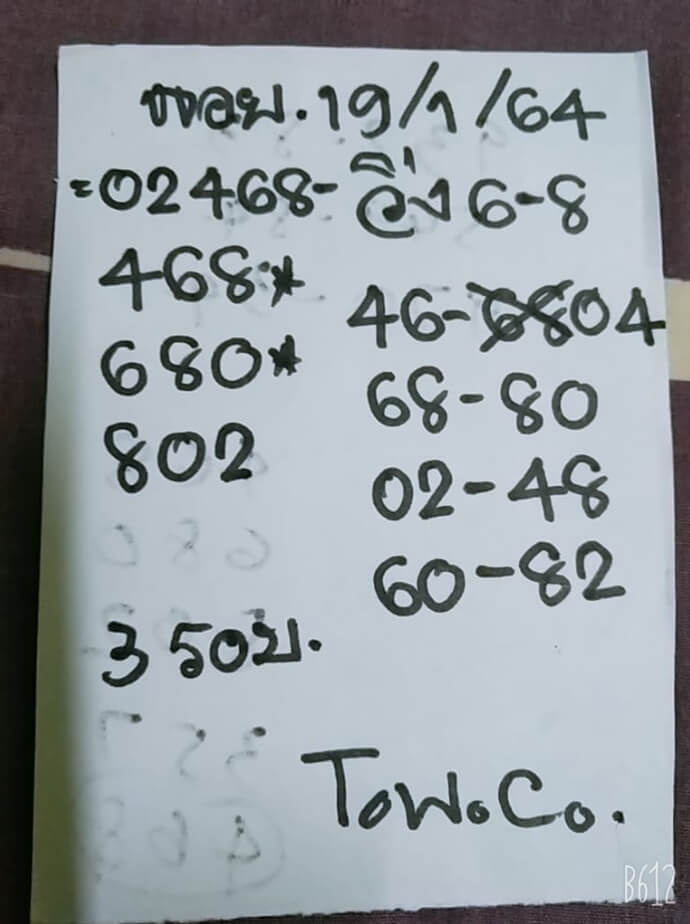 ฮอย.19/1/64
=02468- วิ่ง 6-8
468:*
680*
802
46-6804
68-80
02-48
60-82
3 รอบ.
T.W.Co.
B612